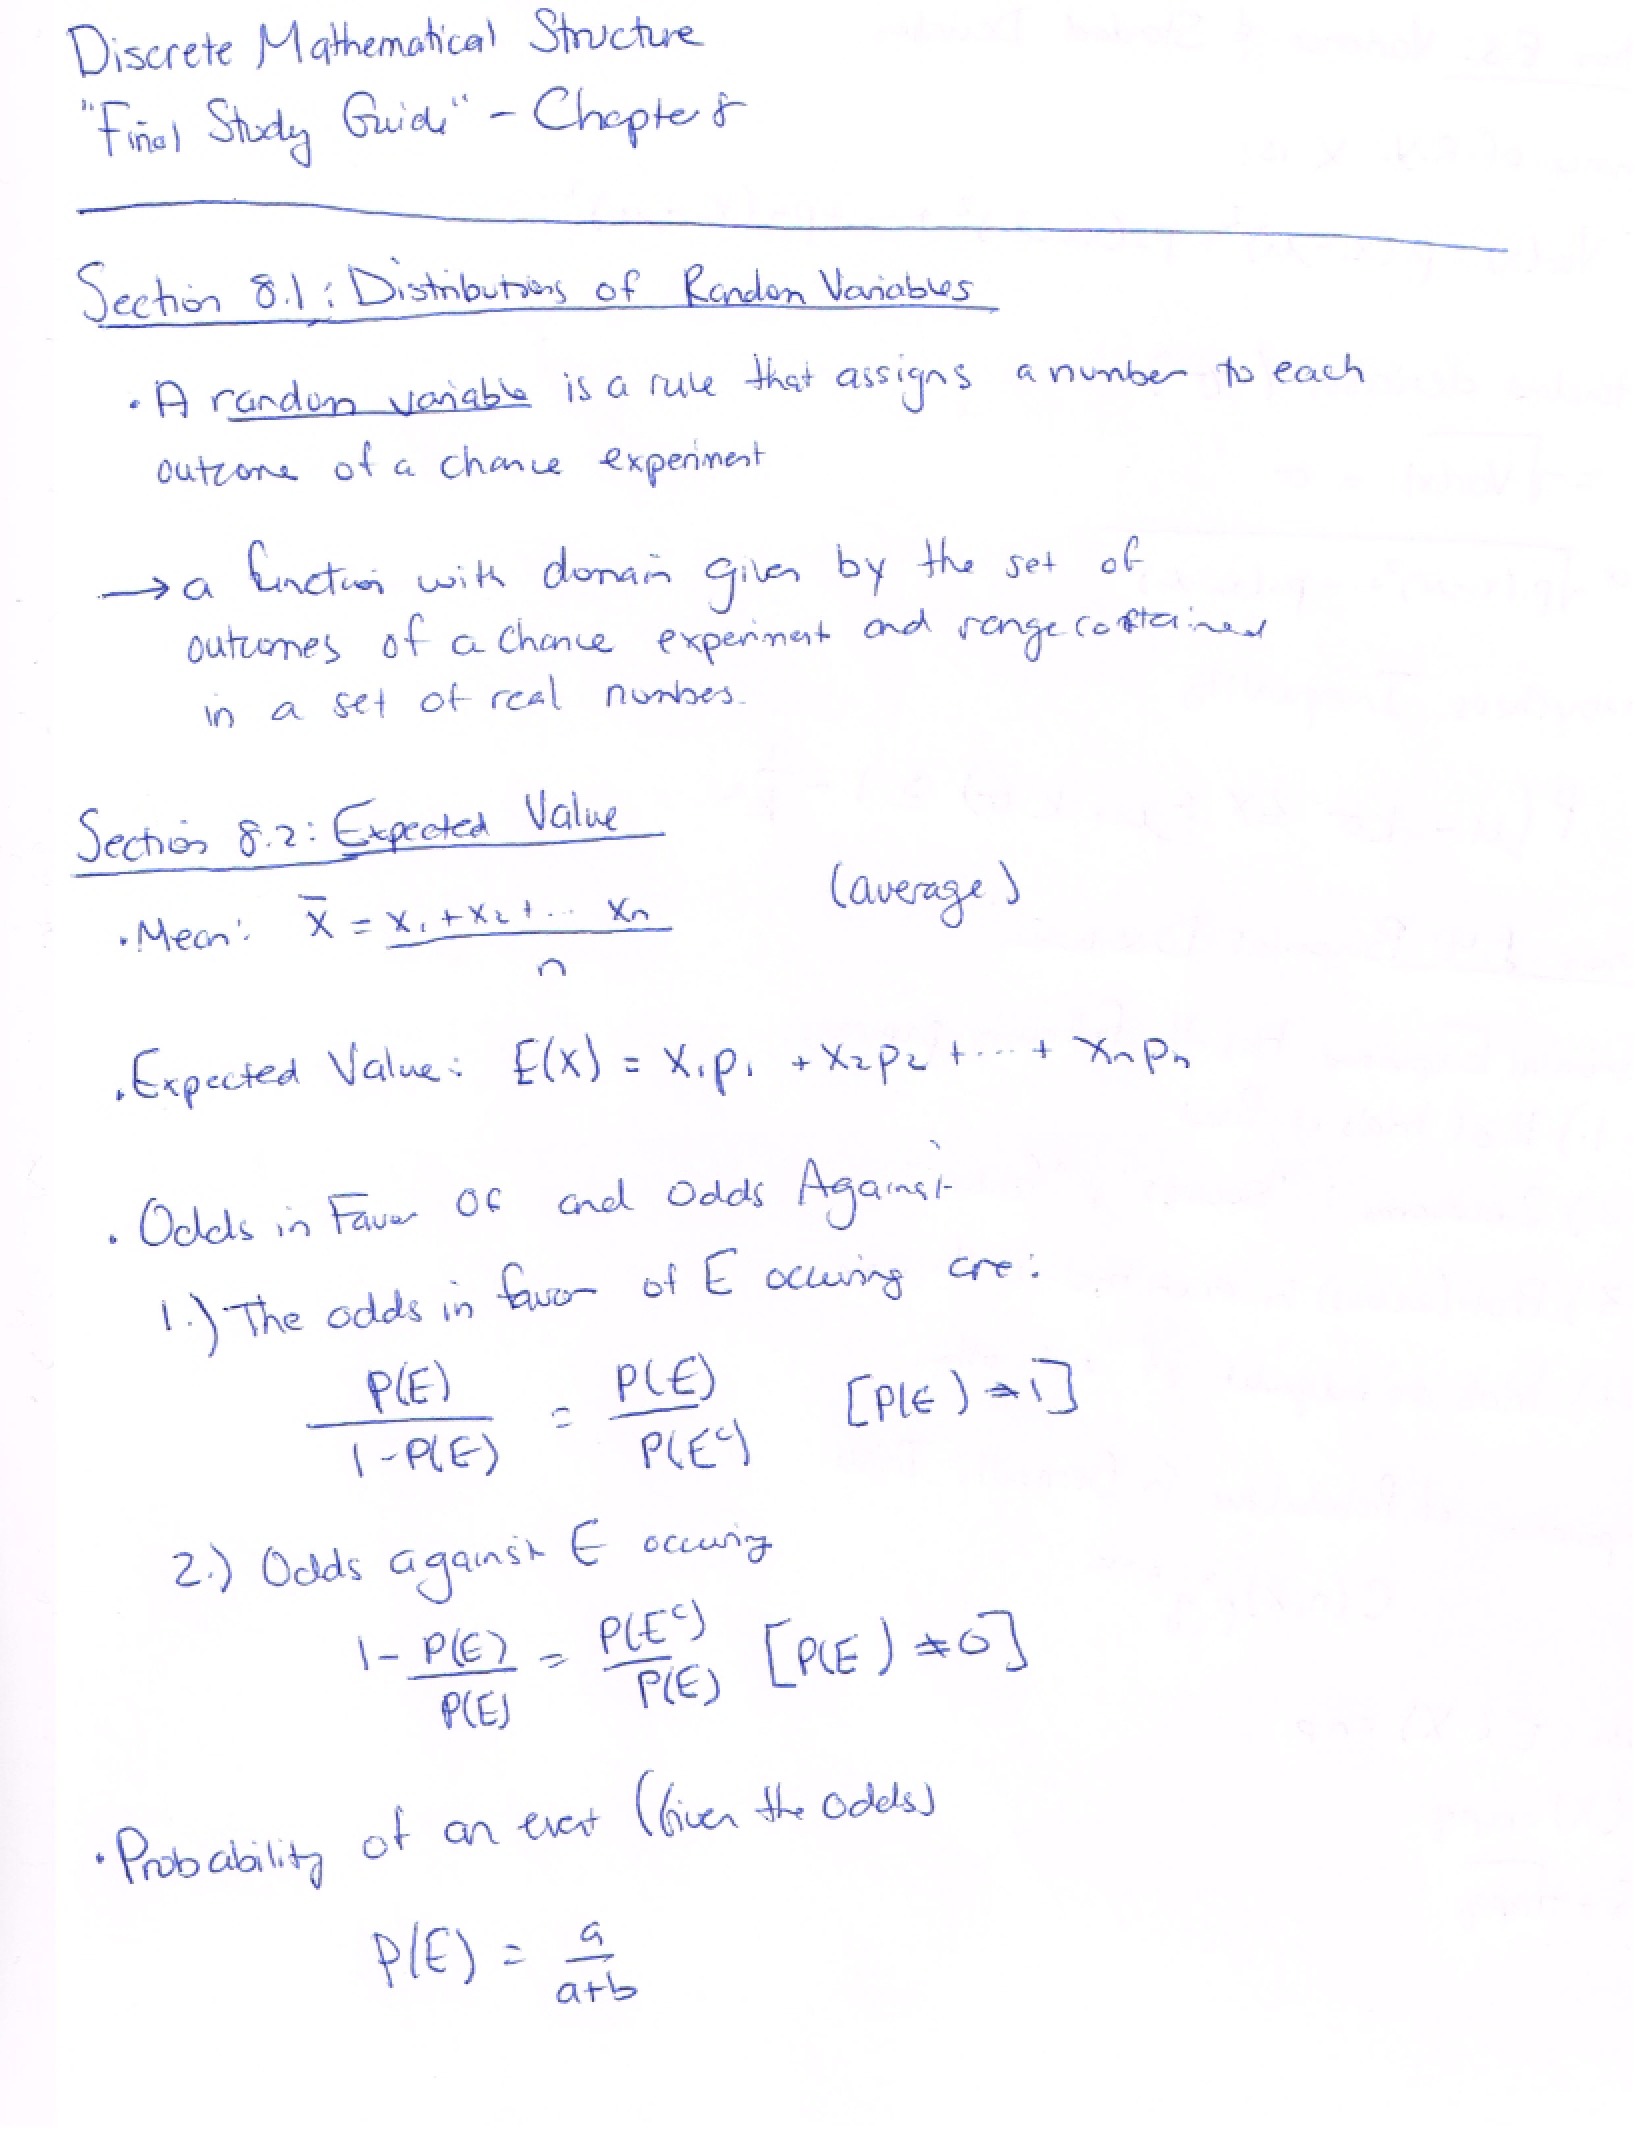 Discrete Mathematical Structure
"Final Study Guide" - Chapter 8
Section 8.1: Distributions of Random Variables
• A random variable is a rule that assigns a number to each
outcome of a chance experiment
→ a function with domain given by the set of
outcomes of a chance experiment and range contained
in a set of real numbes.
Section 8.2: Expected Value
(average)
• Mean: x̄ = x₁ + x₂ + ... xₙ
n
• Expected Value: E(x) = x₁p₁ + x₂p₂ + ... + xₙpₙ
• Odds in Favor Of and Odds Against
1.) The odds in favor of E occuring are:
P(E) / 1-P(E) = P(E) / P(Eᶜ) [P(E) ≠ 1]
2.) Odds against E occuring
1 - P(E) / P(E) = P(Eᶜ) / P(E) [P(E) ≠ 0]
• Probability of an event (Given the odds)
P(E) = a / a+b